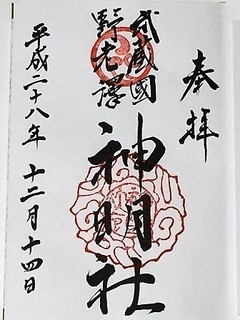 奉拝
武蔵國
野老澤
神明社
平成二十八年 十二月十四日